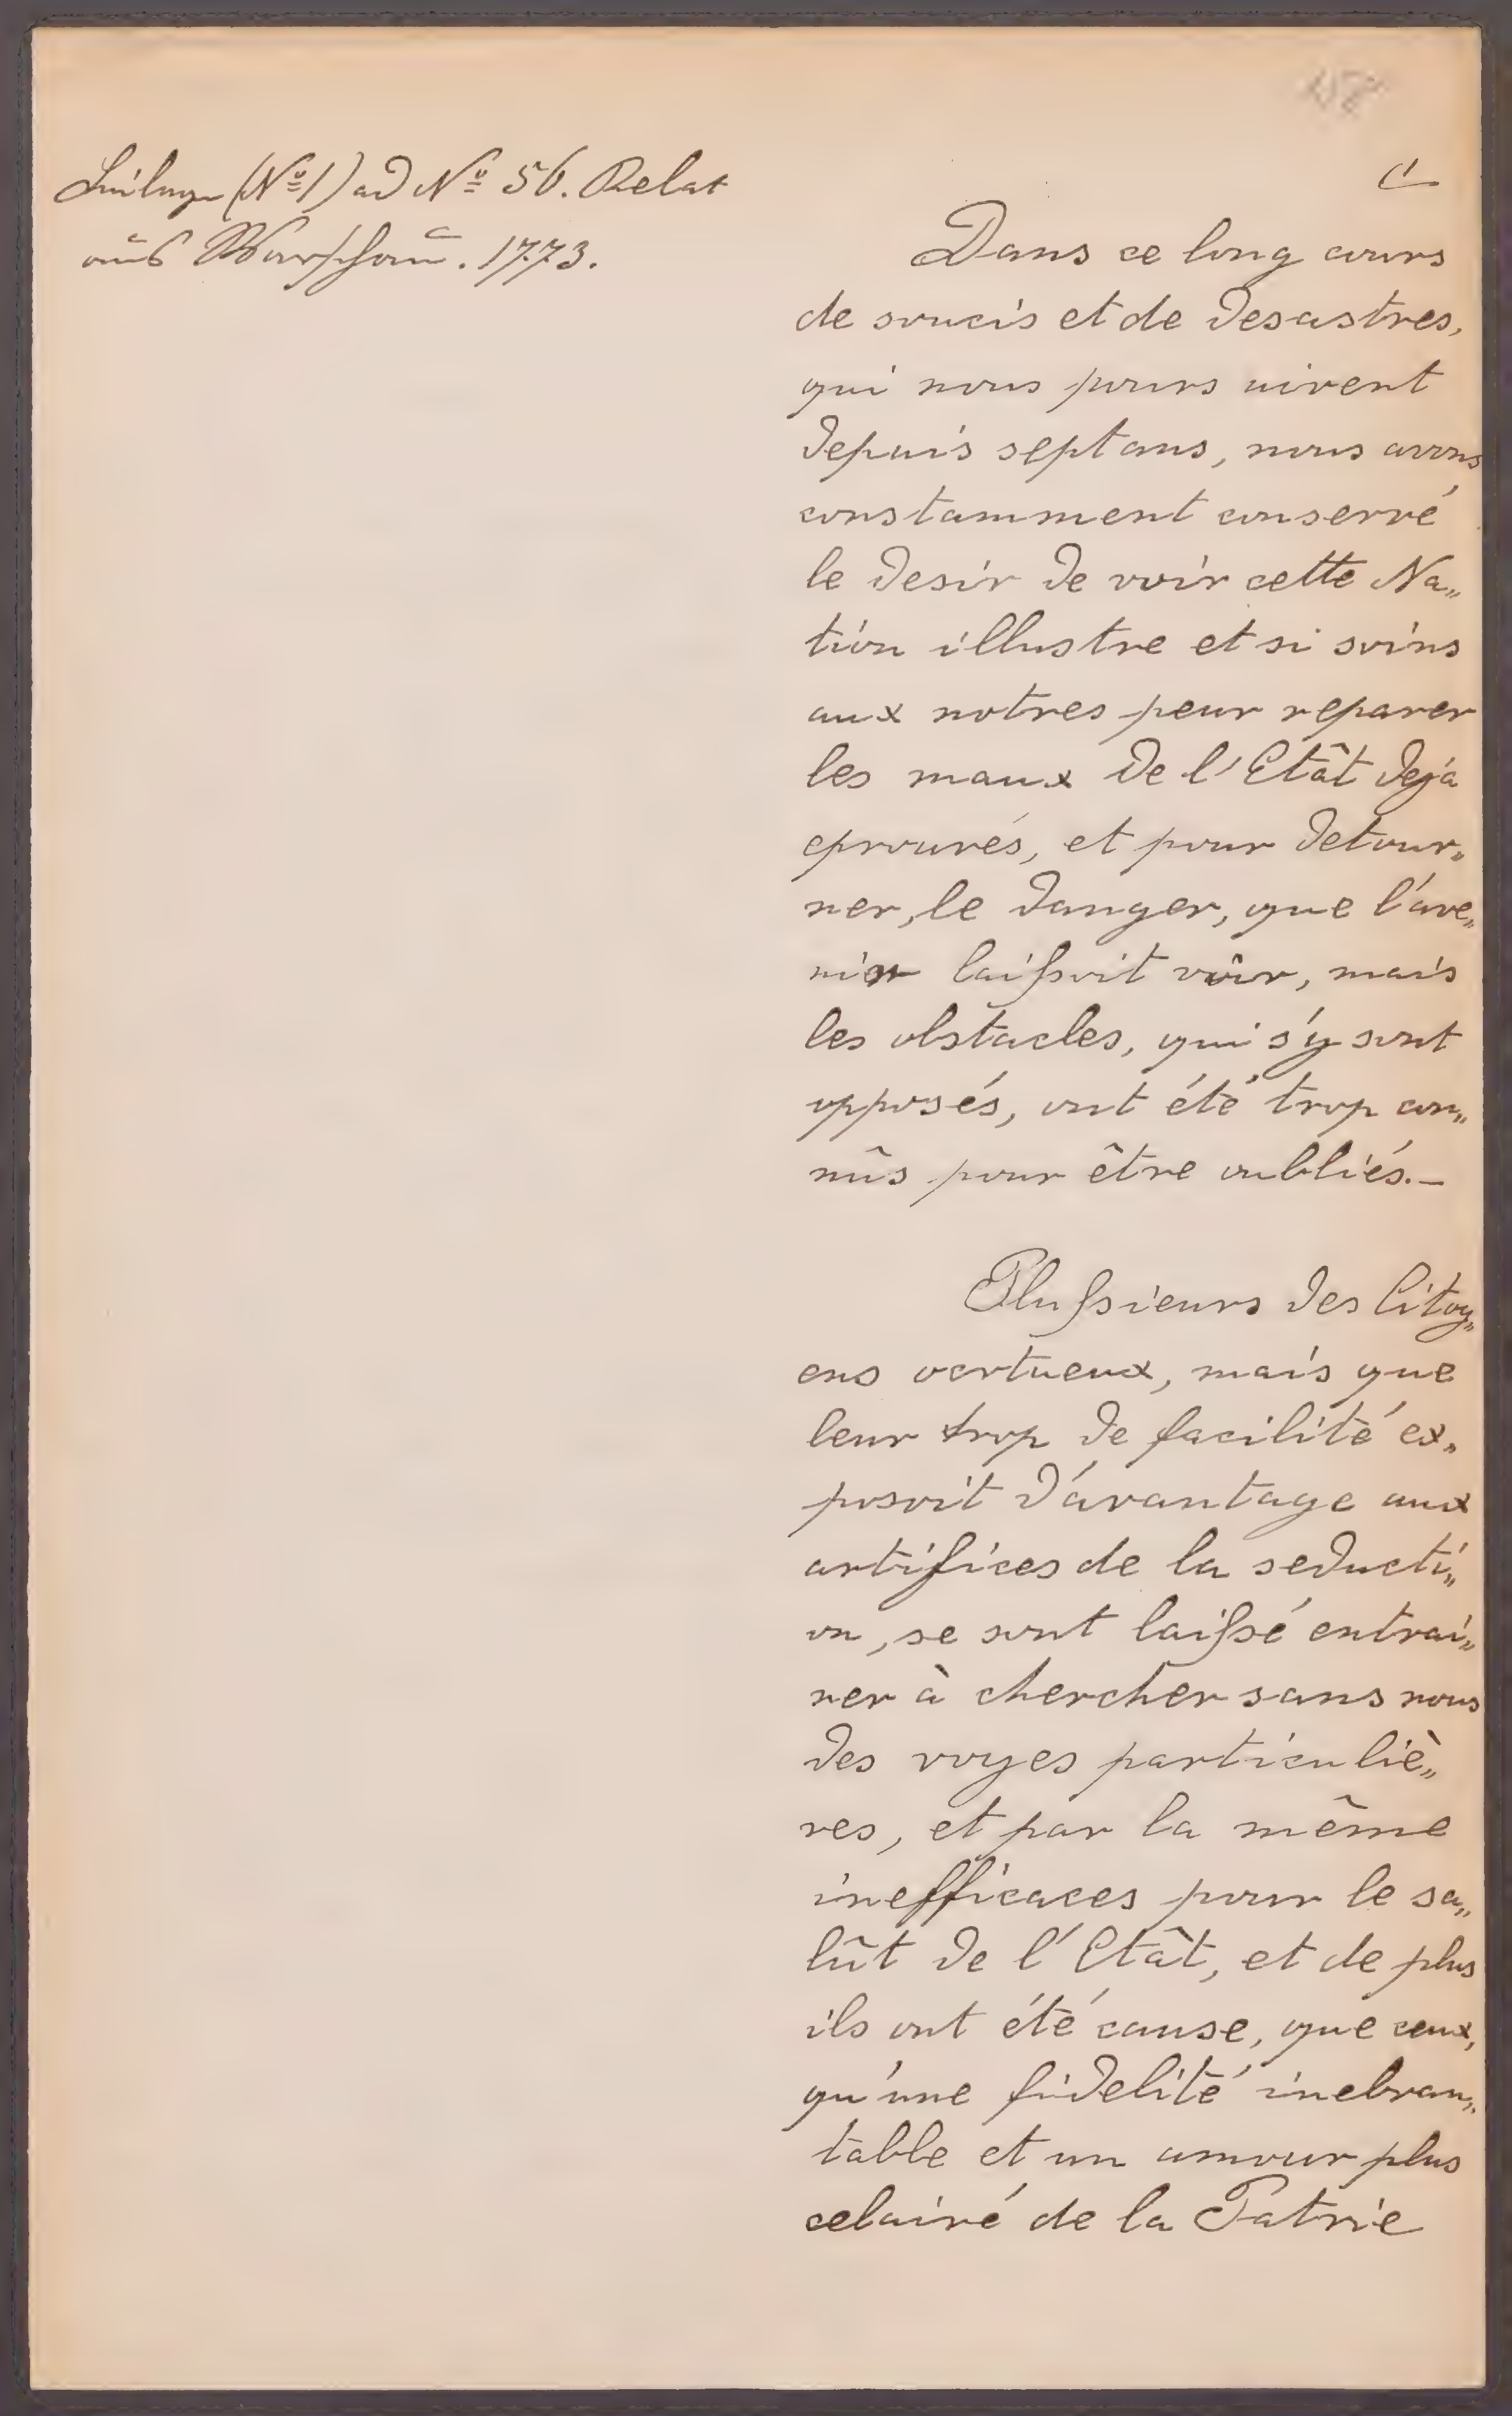 Beilage (Nº 1) ad Nº 56. Relat
aus Warschau. 1773.
Dans ce long cours
de soucis et de desastres,
qui nous pours uivent
depuis sept ans, nous avons
constamment conservé
le desir de voir cette Na„
tion illustre et si soins
aux notres peur reparer
les maux de l'Etât deja
eprouvés, et pour detour„
ner, le danger, que l'ave„
nir laiſsoit voir, mais
les obstacles, qui s'y sont
opposés, ont été trop con„
nûs pour être oubliés.—
Pluſsieurs des Citoy„
ens vertueux, mais que
leur trop de facilité ex„
posoit d'avantage aux
artifices de la seducti„
on, se sont laiſsé entrai„
ner à chercher sans nous
des voyes particuliè„
res, et par la même
inefficaces pour le sa„
lût de l'Etât, et de plus
ils ont été cause, que ceux,
qu'une fidelité inebran„
table et un amour plus
eclairé de la Patrie